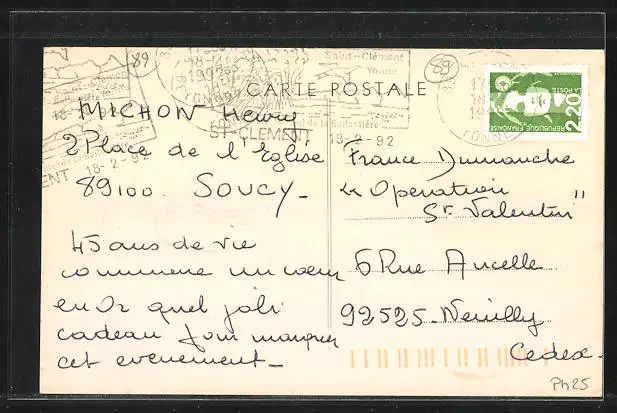 89
89
Saint-Clément
Yonne
CARTE POSTALE
LA POSTE
2,20
REPUBLIQUE FRANÇAISE
ST-CLEMENT
18-2-92
18-2-92
MICHON Henry
2 Place de l'Eglise
89100. SOUCY-
45 ans de vie
commune un coeur
en Or quel joli
cadeau pour marquer
cet evenement-
France Dimanche
"Operation
St Valentin"
6 Rue Ancelle
92525-Neuilly
Cedex.
Ph25